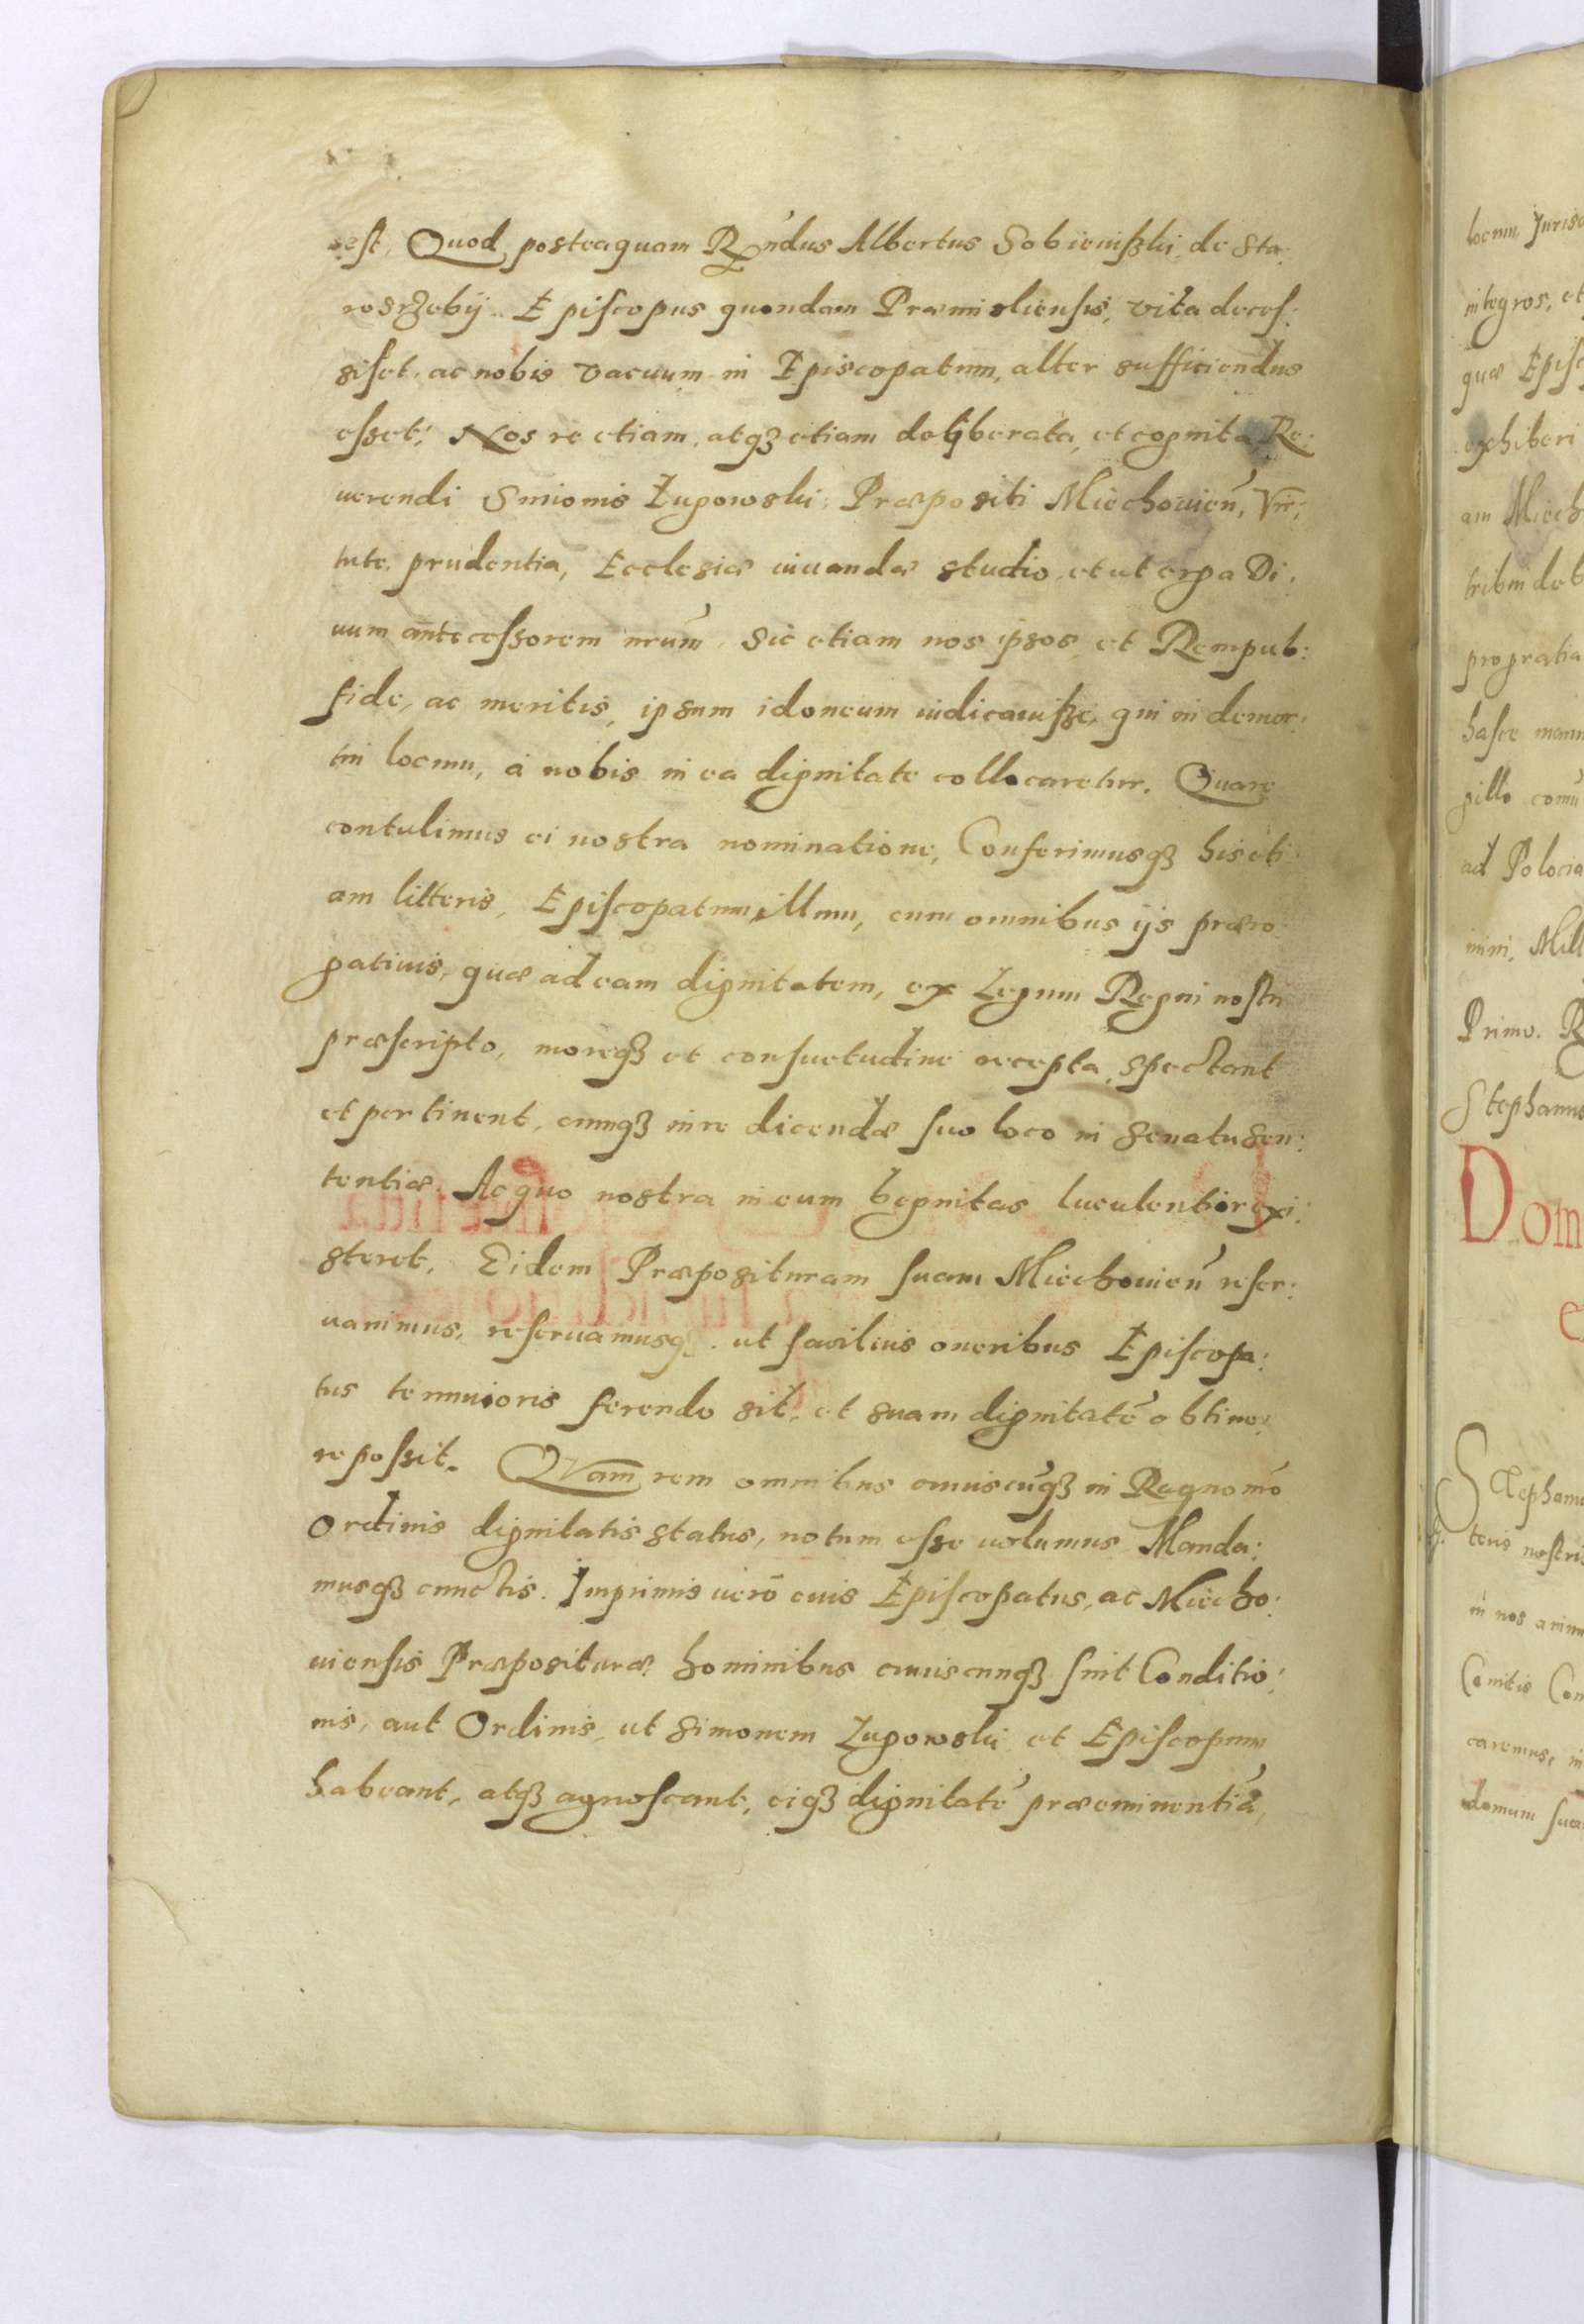 est, Quod posteaquam Rṇdus Albertus Sobieiußki de Sta:
rosrzebÿ Episcopus quondam Præmisliensis, vita deces:
siset, ac nobis vacuum in Episcopatum, alter sufficiendus
esset; Nos re etiam, atqȝ etiam deliberata, et cognita Re:
uerendi Simionis Ługowski Præpositi Miechouieñ, Vir,
tute, prudentia, Ecclesiæ iuuandæ studio, et ut erga Di,
uum antecessorem nrum̃, sic etiam nos ipsos, et Rempub:
fide, ac meritis, ipsum idoneum iudicauisse, qui in demor:
tui locum, à nobis in ea dignitate collocaretur. Quare
contulimus ei nostra nominatione, Conferimusqȝ his eti
am litteris, Episcopatum illum, cum omnibus ijs præro:
gatiuis, quæ ad eam dignitatem, ex Legum Regni nostri
præscripto, moreqȝ et consuetudine recepta, spectant
et pertinent, cumqȝ iure dicendæ suo loco in senatu sen:
tentiæ. Ac quo nostra in eum begnitas luculentior exi:
steret, Eidem Præposituram suam Miechouieñ reser:
uauimus, reseruamusqȝ. ut facilius oneribus Episcopa:
tus tennuioris ferendo sit, et suam dignitatẽ obtine:
re possit. Quam̃ rem omnibus cuiuscũqȝ in Regno nrõ
Ordinis dignitatis status, notum esse uolumus Manda:
musqȝ cunctis. Imprimis uerò euis Episcopatus, ac Miecho:
uiensis Præposituræ hominibus cuiuscunqȝ sint Conditio:
nis, aut Ordinis, ut Simonem Ługowski et Episcopum
habeant, atqȝ agnoscant, eiqȝ dignitatẽ præeminentiã,
locum Jurisd
integros, et
quæ Episc
exhiberi
am Miech
tribui deb
pro gratia
hasce manu
gillo comu
ad Polocia
mini, Mill
Primo. R
Stephanus
Dom
e
Stephanu
teris nostris
in nos animu
Comitis Con
caremus, in
domum sua